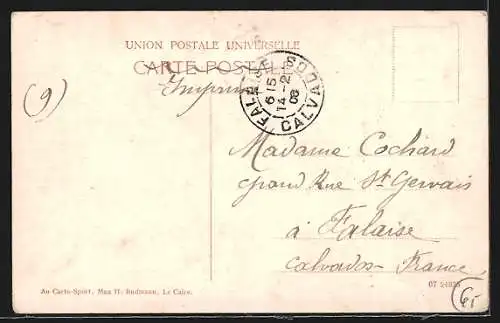 UNION POSTALE UNIVERSELLE
CARTE POSTALE
Imprimé
(9)
FALAISE
6 15
14 - 2
08
CALVADOS
Madame Cochard
grand Rue St Gervais
à Falaise
Calvados France
Au Carto-Sport, Max H. Rudmann, Le Caire.
07